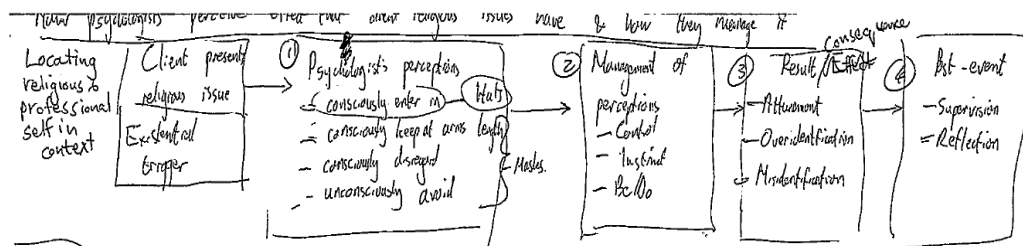 psychologists perceive effect that client religious issues have & how they manage it
Locating
religious &
professional
self in
context
Client presents
religious issue
Existential
trigger
①
Psychologist's perceptions
- consciously enter in - Hats
- consciously keep at arms length
- consciously disregard
- unconsciously avoid
- Masks.
②
Management of
perceptions
- Control
- Instinct
- Be/Do
③
consequence
Result/Effect
- Attunement
- Overidentification
- Misidentification
④
Post-event
- Supervision
- Reflection